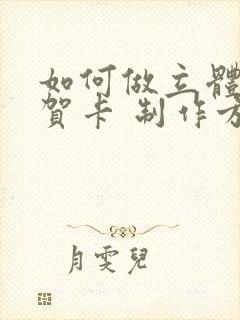 如何做立體
賀卡 制作方
月雯兒